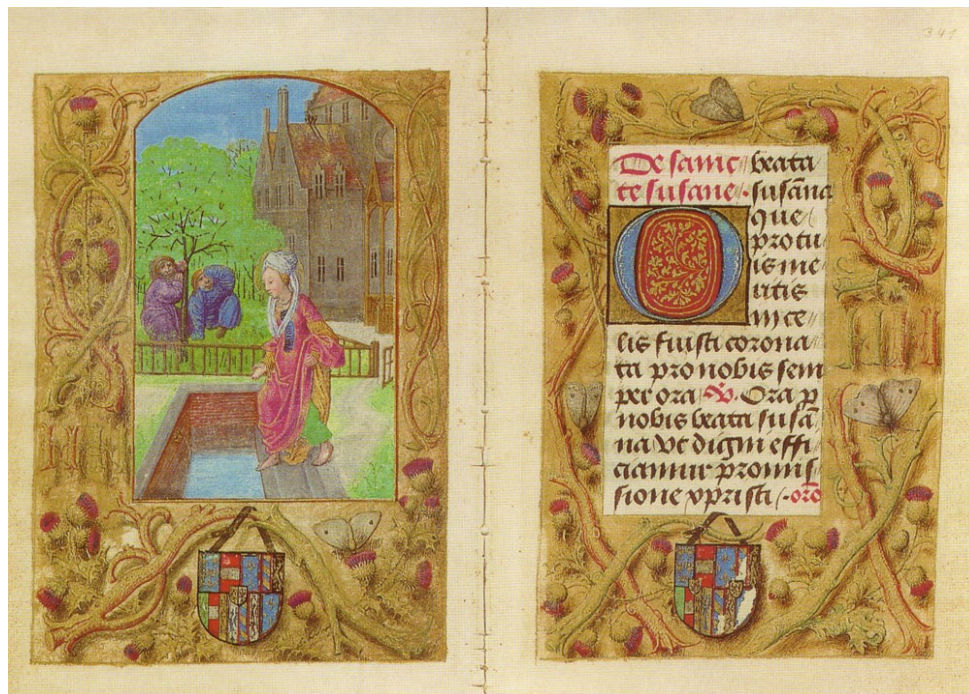 341
De sanc
te susane ·
O beata
susāna
que
pro tu
is me
ritis
in ce
lis fuisti corona
ta pro nobis sem
per ora ℣. Ora p
nobis beata susā
na vt digni effi
ciamur promis
sione xpristi · orō